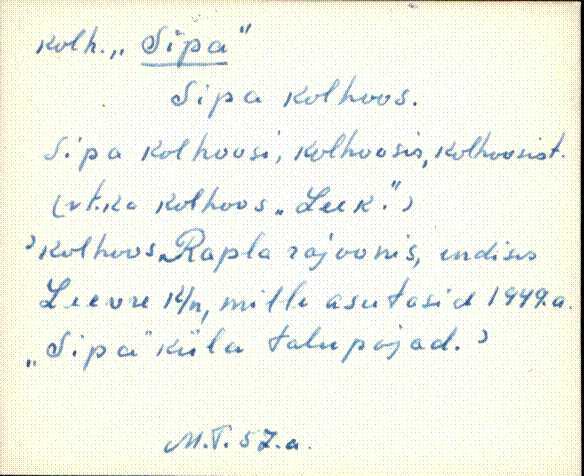 kolh. „Sipa"
Sipa kolhoos.
Sipa kolhoosi, kolhoosis, kolhoosist.
(vt.ka kolhoos „Leek.")
'kolhoos Rapla rajoonis, endisis
Leevre K/n, mille asutasid 1949.a.
„Sipa" küla talupojad.'
M.T. 57.a.